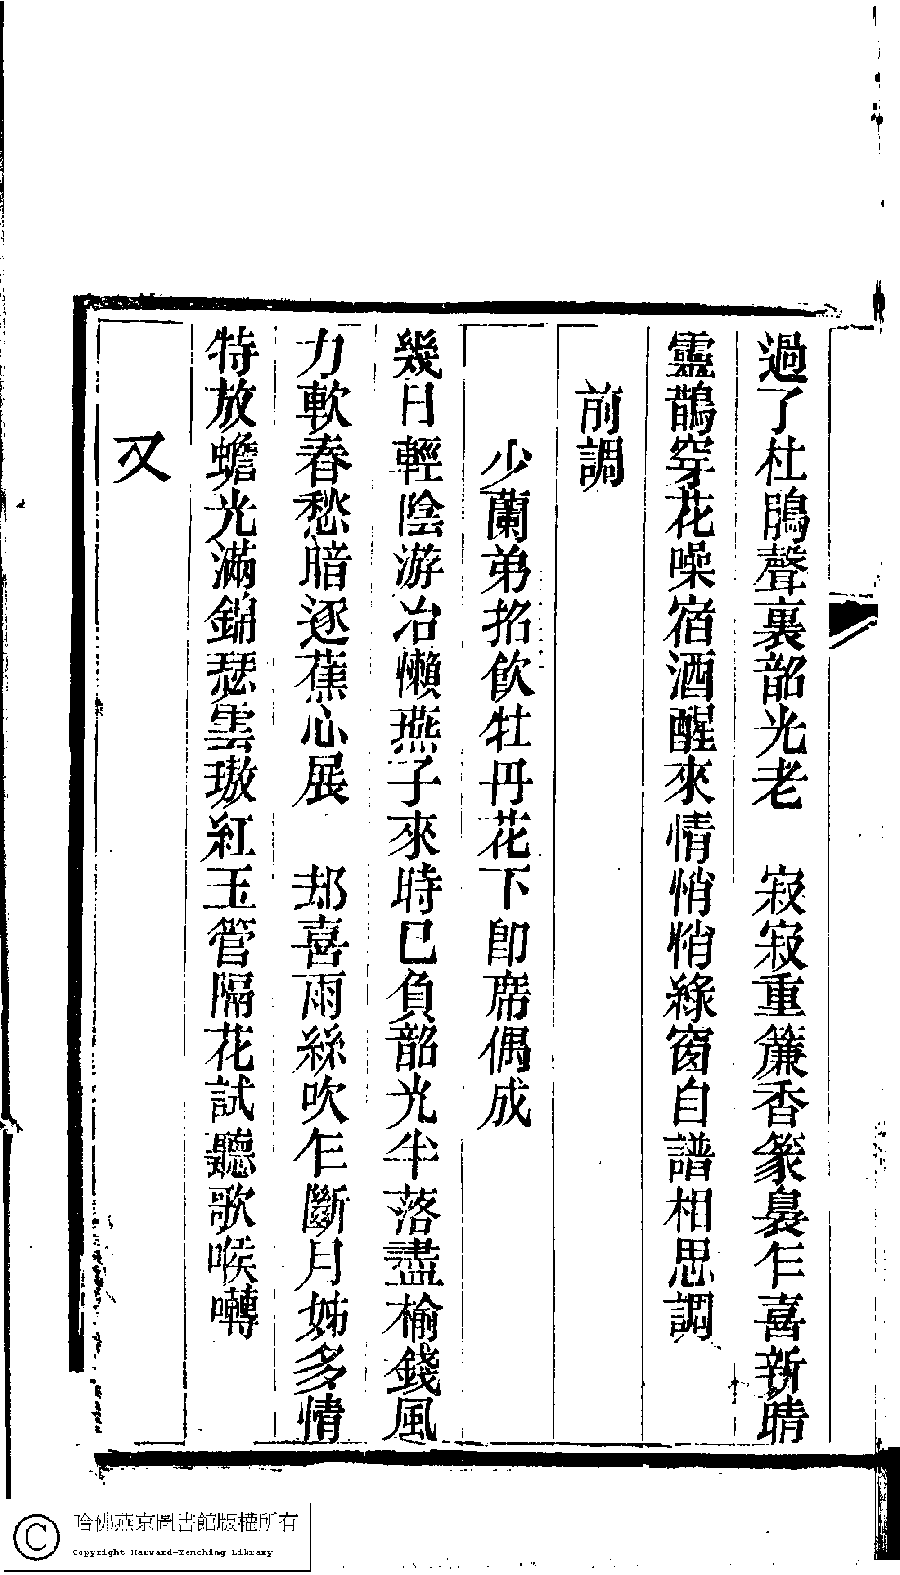 過了杜鵑聲裏韶光老　寂寂重簾香篆裊乍喜新晴
靈鵲穿花噪宿酒醒來情悄悄綠窗自譜相思調
前調
少蘭弟招飲牡丹花下卽席偶成
幾日輕陰游冶懶燕子來時已負韶光半落盡榆錢風
力軟春愁暗逐蕉心展　却喜雨絲吹乍斷月姊多情
特放蟾光滿錦瑟雲璈紅玉管隔花試聽歌喉囀
又
哈佛燕京圖書館版權所有
Copyright Harvard-Yenching Library